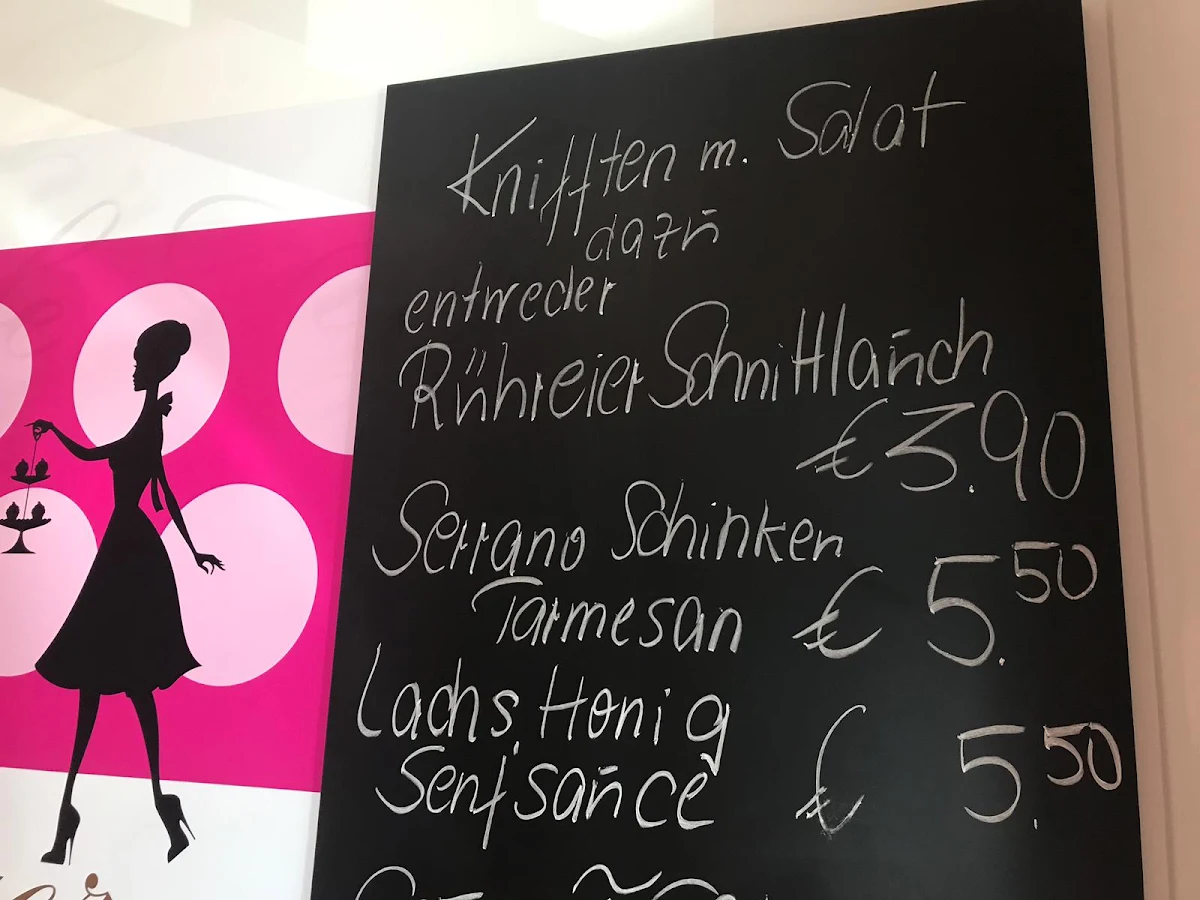 Knifften m. Salat
dazu
entweder
Rühreier Schnittlauch
€ 3.90
Serrano Schinken
Parmesan € 5.50
Lachs, Honig
Senfsauce € 5.50